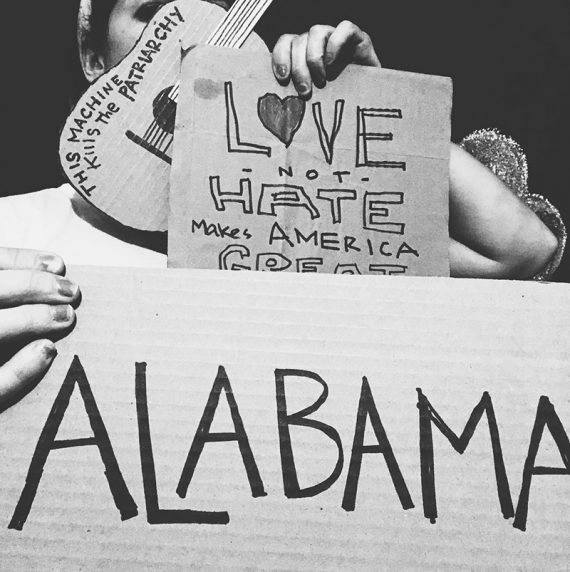 THIS MACHINE
Kills The PATRIARCHY
LOVE
- NOT -
HATE
Makes AMERICA
GREAT
ALABAMA